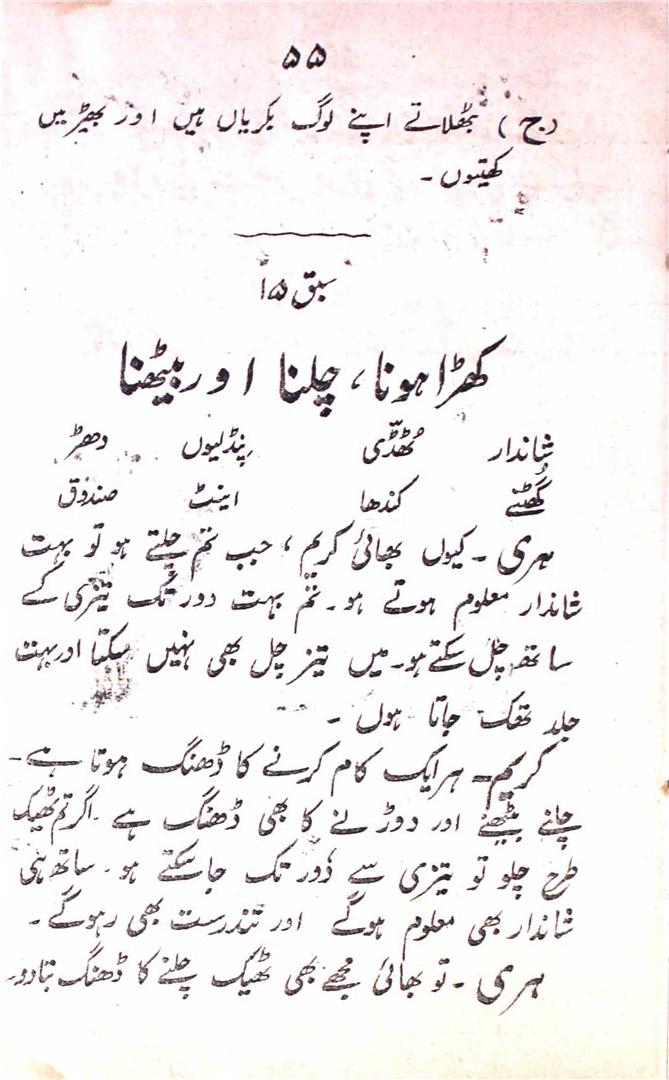 ۵۵
(ج) بٹھلاتے اپنے لوگ بکریاں ہیں اور بھیڑیں
کھیتوں ۔
سبق ۱۵
کھڑا ہونا، چلنا اور بیٹھنا
شاندار ٹھڈّی پنڈلیوں دھڑ
گھُٹنے کندھا اینٹ صندوق
ہری ۔ کیوں بھائی کریم، جب تم چلتے ہو تو بہت
شاندار معلوم ہوتے ہو۔ تم بہت دور تک تیزی کے
ساتھ چل سکتے ہو۔ میں تیز چل بھی نہیں سکتا اور بہت
جلد تھک جاتا ہوں ۔
کریم۔ ہر ایک کام کرنے کا ڈھنگ ہوتا ہے۔
چلنے بیٹھنے اور دوڑنے کا بھی ڈھنگ ہے ۔ اگر تم ٹھیک
طرح چلو تو تیزی سے دُور تک جا سکتے ہو۔ ساتھ ہی
شاندار بھی معلوم ہوگے اور تندرست بھی رہوگے ۔
ہری ۔ تو بھائی مجھے بھی ٹھیک چلنے کا ڈھنگ بتا دو۔